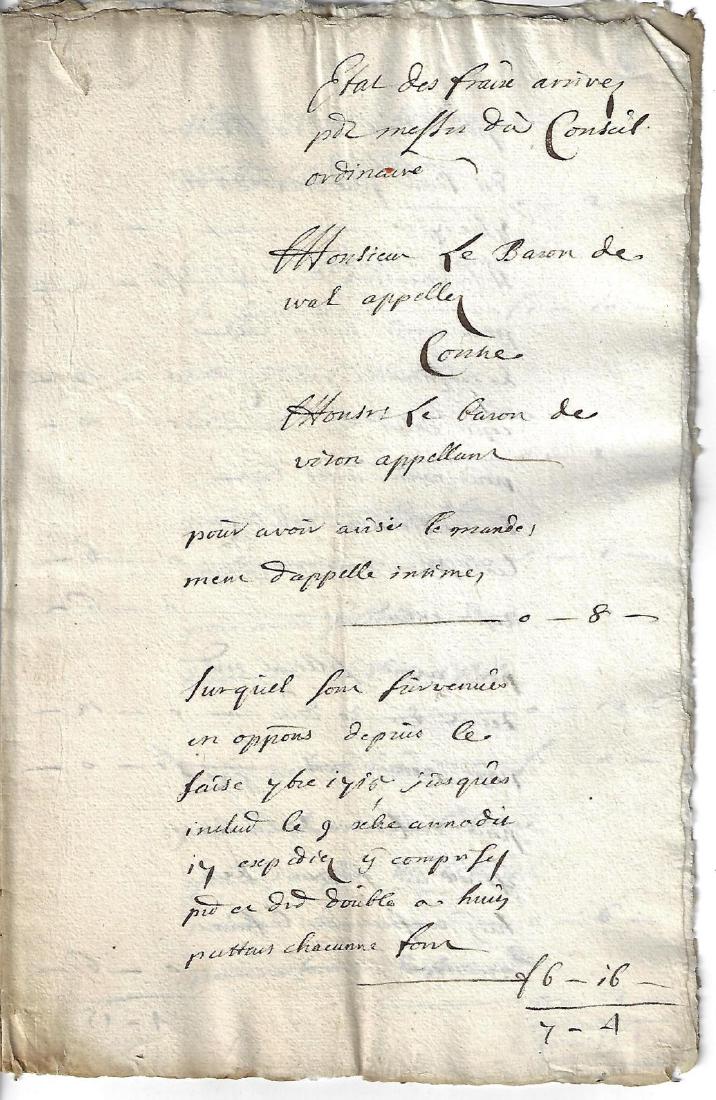 Etat des fraix arrivez
pdt messrs du Conseil
ordinaire
Monsieur Le Baron de
wal appellez
Contre
Monsr Le baron de
viron appellant
pour avoir avisé le mande,
ment d'appelle intimez
o — 8 —
Surquel sont survenües
en oppōns depuis le
7bre 1715 jusques
includ le 9 xbre annodit
17 expediez ÿ comprises
double a huit
pattars chacunne font
f 6 — 16 —
7 — 4